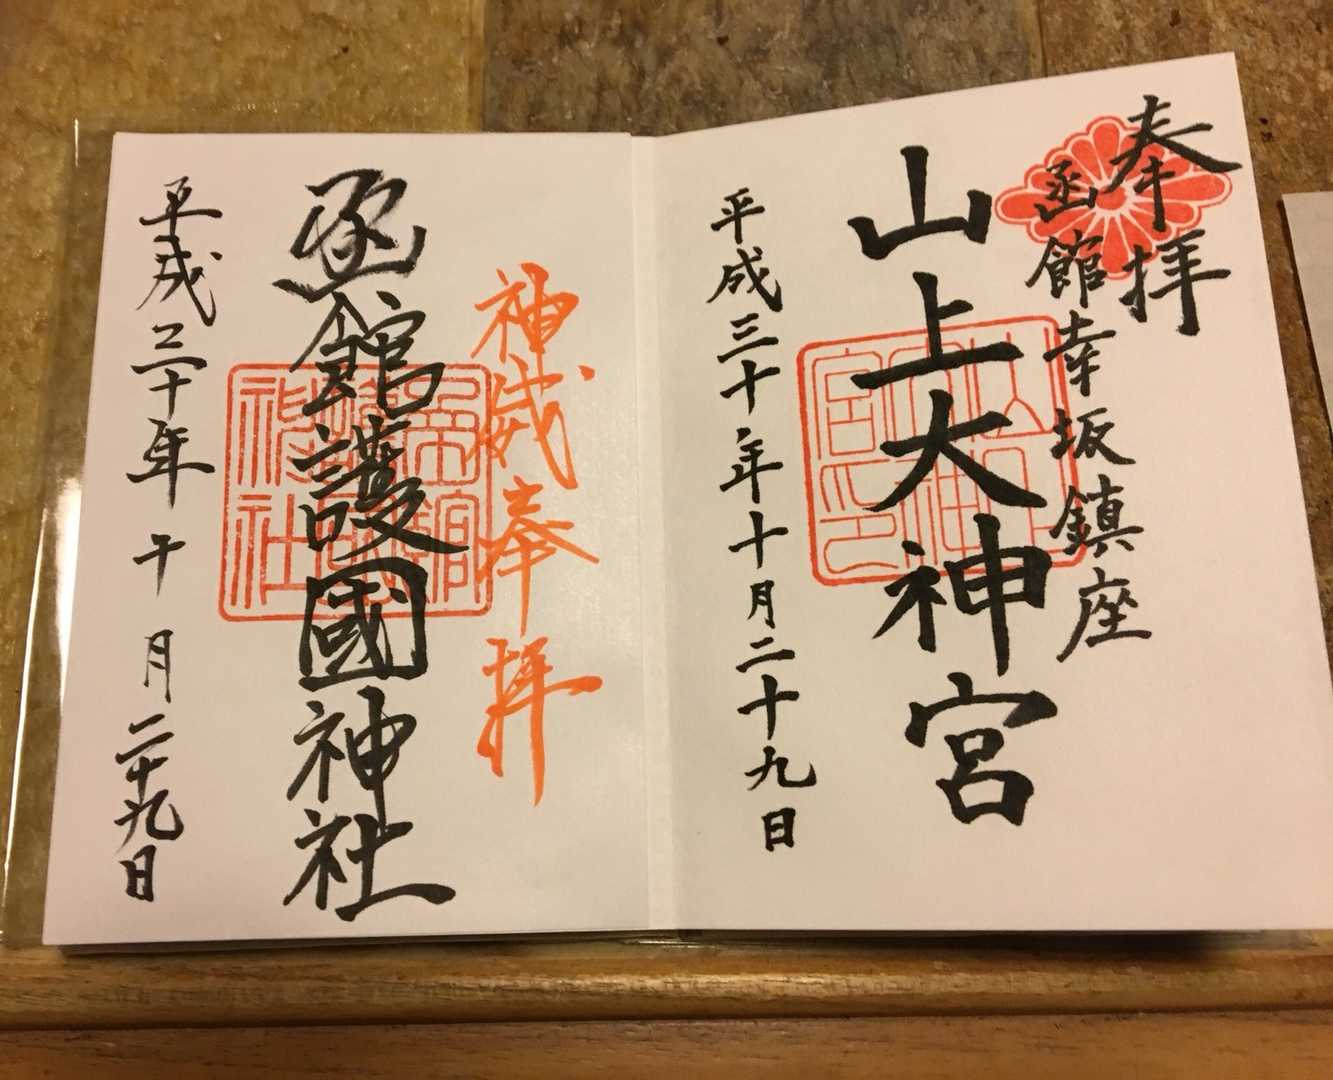 奉拝
函館幸坂鎮座
山上大神宮
平成三十年十月二十九日
神威奉拝
函館護國神社
平成三十年十月二十九日